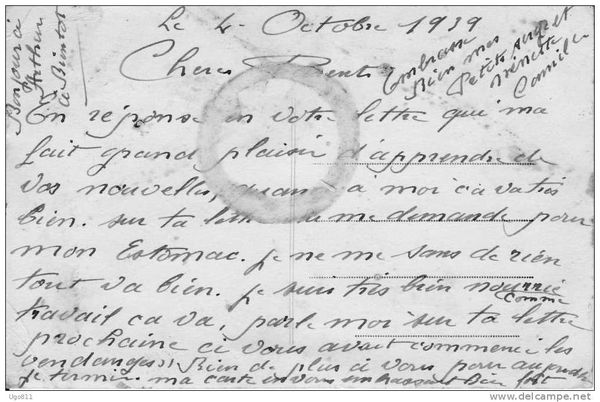 Le 4 Octobre 1939
Bonjour à
Arthur
a Bientot
Embrasse
Bien mes
Petits
Camille
Chers
En réponse en votre lettre qui ma
fait grand plaisir d'apprendre de
vos nouvelles, quand à moi ca va très
bien. sur ta lettre tu me demande pour
mon Estomac. je ne me sans de rien
tout va bien. je suis très bien nourrie
comme
travail ca va, parle moi sur ta lettre
prochaine ci vous avait commence les
vendanges, Rien de plus ci vous pour
je termine ma carte en vous embrassant Bien fort
Ugo811
delcampe.net